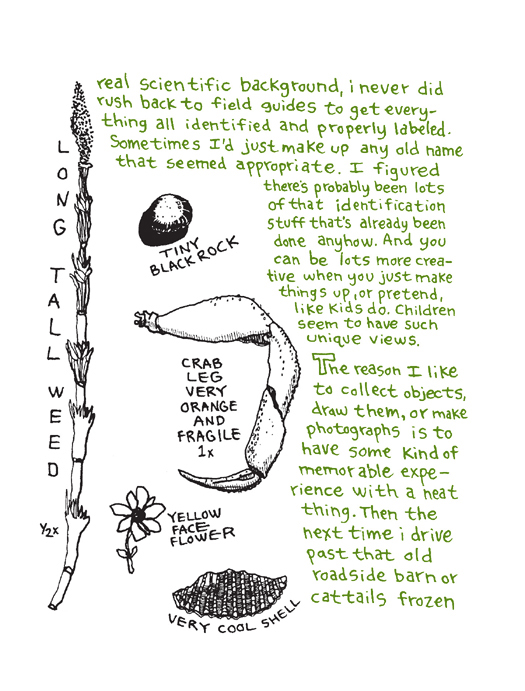 real scientific background, i never did
rush back to field guides to get every-
thing all identified and properly labeled.
Sometimes I'd just make up any old name
that seemed appropriate. I figured
there's probably been lots
of that identification
stuff that's already been
done anyhow. And you
can be lots more crea-
tive when you just make
things up, or pretend,
like kids do. Children
seem to have such
unique views.
The reason I like
to collect objects,
draw them, or make
photographs is to
have some kind of
memorable expe-
rience with a neat
thing. Then the
next time i drive
past that old
roadside barn or
cattails frozen
LONG TALL WEED
1/2x
TINY
BLACK ROCK
CRAB
LEG
VERY
ORANGE
AND
FRAGILE
1x
YELLOW
FACE-
FLOWER
VERY COOL SHELL